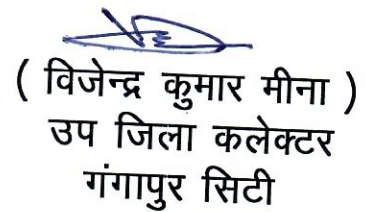 ( विजेन्द्र कुमार मीना )
उप जिला कलेक्टर
गंगापुर सिटी